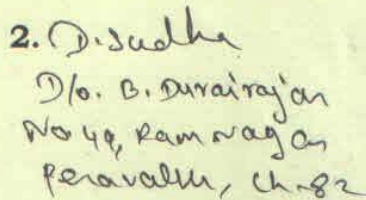 2. D. Sudha
D/o. B. Durairajan
No 49, Ram nagar
Peravallur, Ch-82